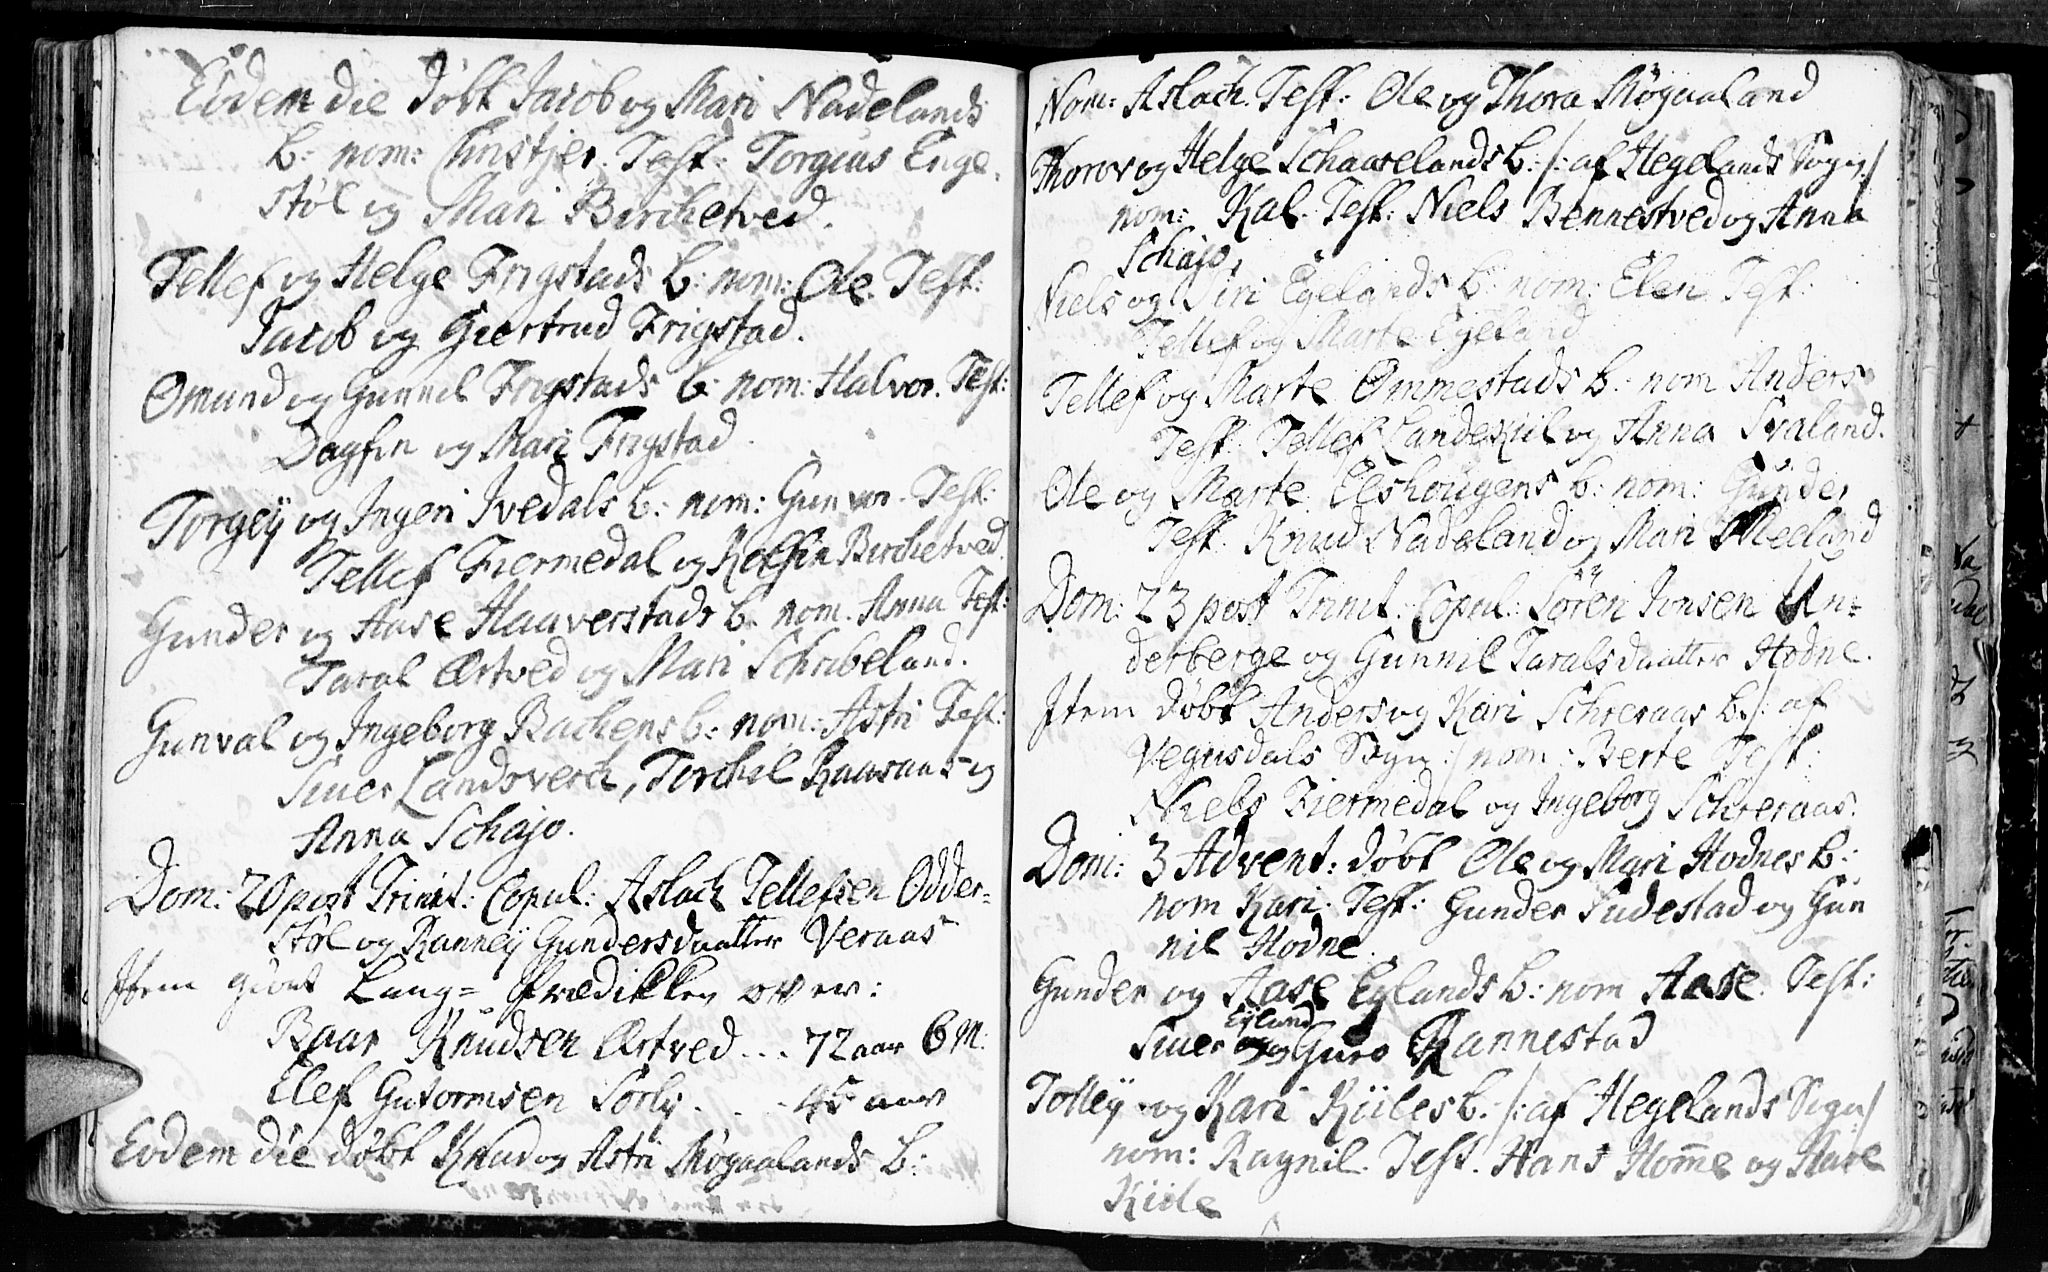 Eodem die døbt Jacob og Mari Nadelands
b: nom: Christjer. Test: Torgius Enge
støl og Mari Birchetved.
Tellef og Helge Frigstads b: nom: Ole. Test:
Jacob og Giertrud Frigstad.
Omund og Gunnil Frigstads b: nom: Halvor. Test:
Dagfin og Mari Frigstad.
Torgeÿ og Ingeri Ivedals b: nom: Gunvor. Test:
Tellef Fiermedal og Kolfin Birchetved.
Gunder og Aase Haaverstads b: nom. Anna Test:
Taral Ørtved og Mari Schribeland.
Gunval og Ingeborg Bachens b: nom: Astri Test:
Siver Landsverch, Torchil Raasaas og
Anna Schajo.
Dom: 20 post Trinit: Copul: Aslach Tellefsen Odder-
støl og Ranneÿ Gundersdaatter Veraas
Item giort Lang= Prædikken over:
Baar Knudsen Ørtved... 72 aar 6 M:
Elef Gutormsen Sorly. . . . 45 aar
Eodem die døbt Knud og Astri Møgaalands b:
Nom: Aslach. Test: Ole og Thora Møgaaland
Thorov og Helge Schaarelands b: /: af Hegelands Sogn /
nom: Kal. Test: Niels Bennestved og Anna
Schajo.
Niels og Siri Egelands b: nom: Elen Test:
Tellef og Marte Egeland
Tellef og Marte Ommestads b: nom Anders
Test: Tellef Landekiil og Anna Svaland.
Ole og Marte Eeshougens b: nom: Gunder
Test: Knud Nadeland og Mari Meeland
Dom: 23 post Trinit: Copul: Søren Jonsen Un=
derberge og Gunnil Taralsdaatter Hodne.
Item døbt Anders og Kari Schreraas b. /: af
Vegusdals Sogn :/ nom: Berte Test:
Niels Fiermedal og Ingeborg Schreraas.
Dom: 3 Advent: døbt Ole og Mari Hodnes b:
nom Kari. Test: Gunder Sudestad og Gun
nil Hodne.
Gunder og Aase Eglands b: nom Aase. Test:
Eyland
Siver og Guro Rannestad
Tolleÿ og Kari Kiiles b. /: af Hegelands Sogn /
nom: Ragnil. Test. Hans Hom̅e og Aase
Kiile